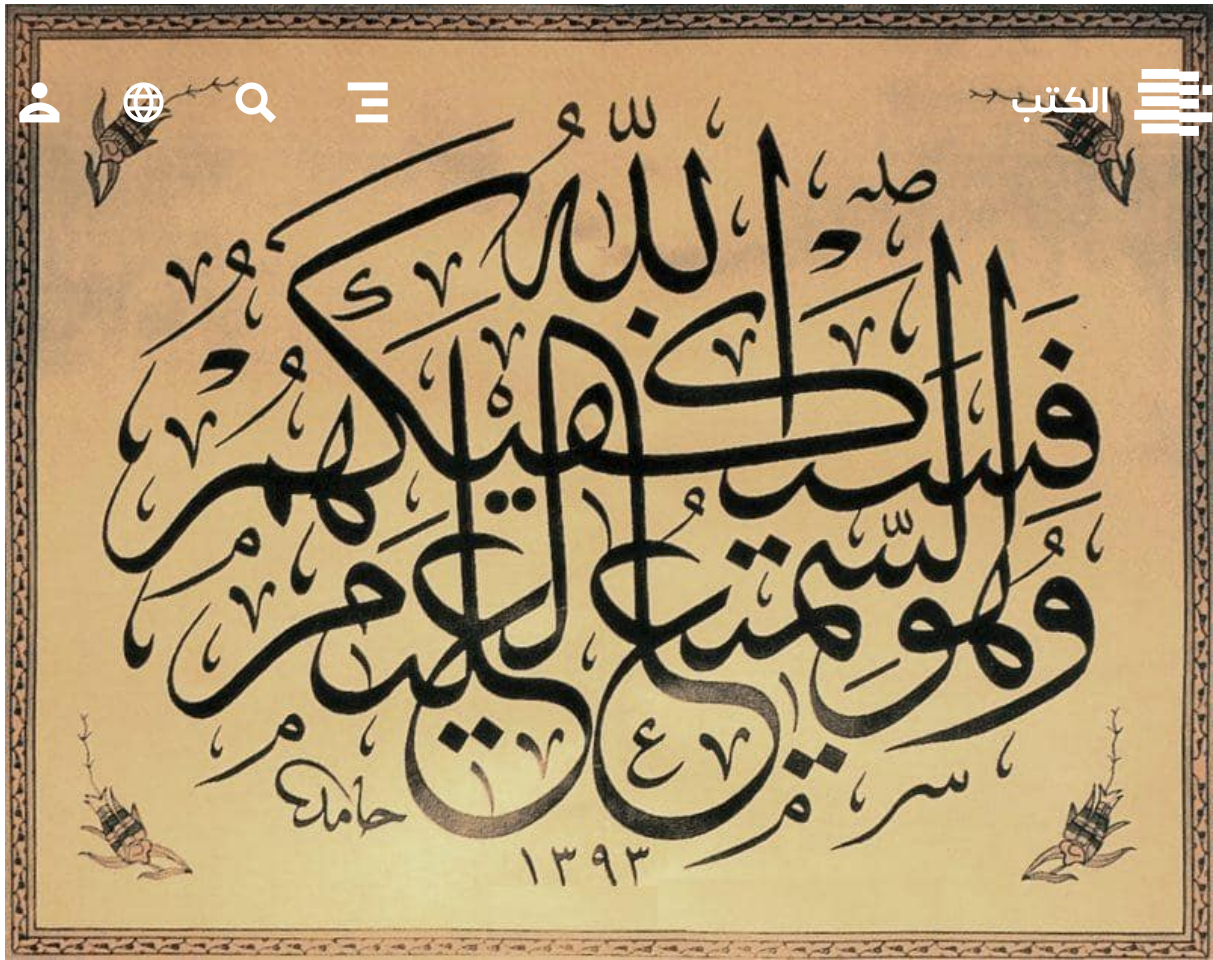 الكتب
فَسَيَكْفِيكَهُمُ اللّٰهُ
وَهُوَ السَّمِيعُ الْعَلِيمُ
حامد
١٣٩٣